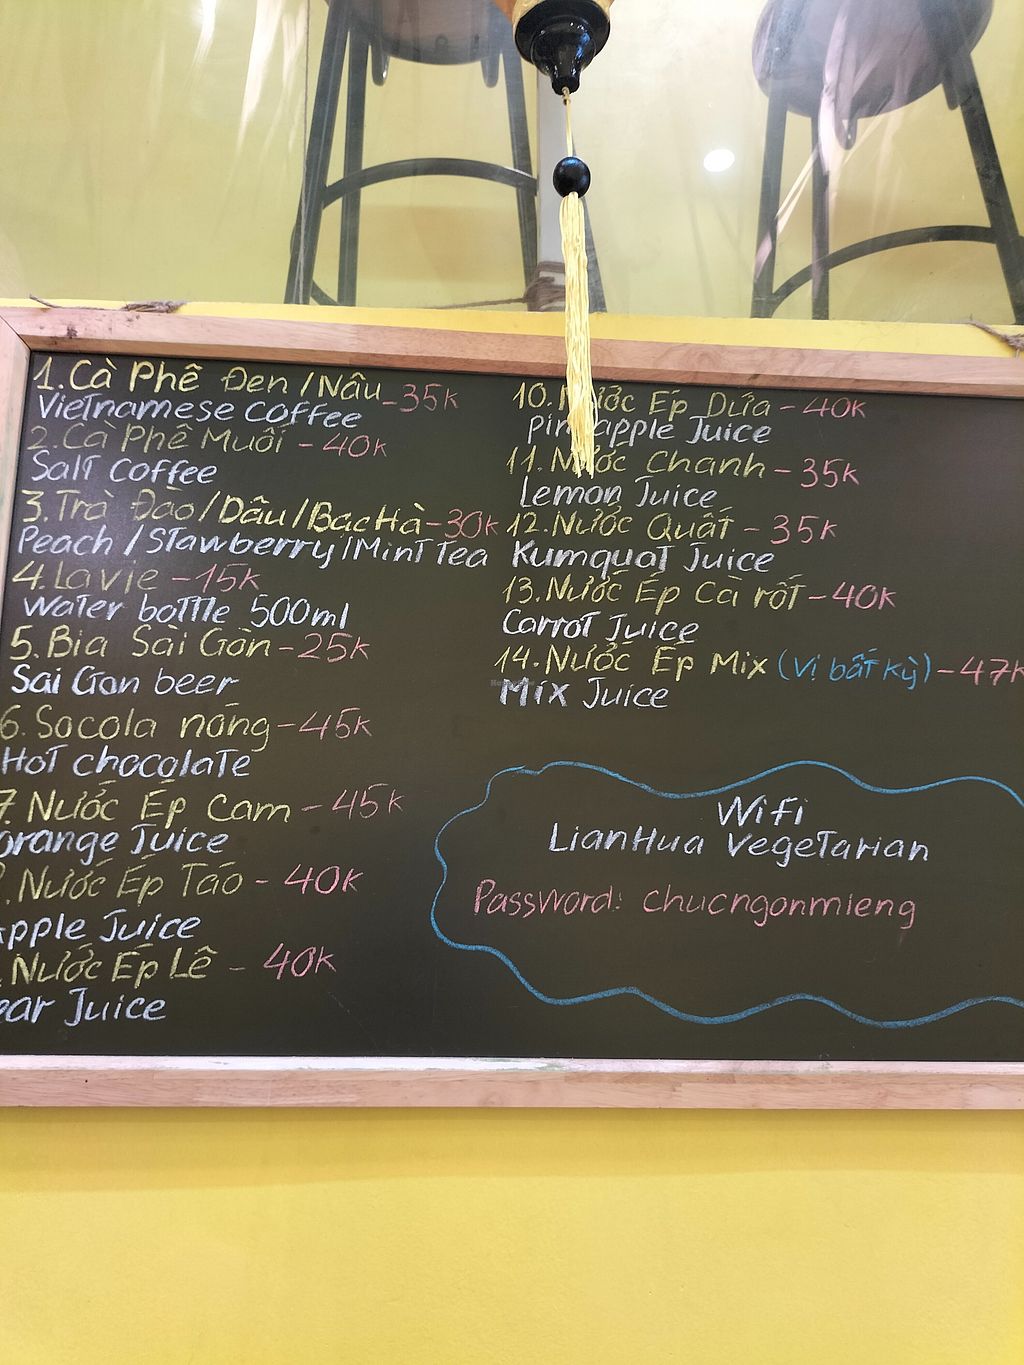 1. Cà Phê Đen / Nâu - 35k
Vietnamese Coffee
2. Cà Phê Muối - 40k
Salt Coffee
3. Trà Đào / Dâu / Bạc Hà - 30k
Peach / Stawberry / Mint Tea
4. Lavie - 15k
Water bottle 500ml
5. Bia Sài Gòn - 25k
Sai Gon beer
6. Socola nóng - 45k
Hot chocolate
7. Nước Ép Cam - 45k
orange Juice
Nước Ép Táo - 40k
Apple Juice
Nước Ép Lê - 40k
ear Juice
10. Nước Ép Dứa - 40k
Pineapple Juice
11. Nước Chanh - 35k
Lemon Juice
12. Nước Quất - 35k
Kumquat Juice
13. Nước Ép Cà rốt - 40k
Carrot Juice
14. Nước Ép Mix (Vị bất kỳ) - 47k
Mix Juice
Wifi
LianHua Vegetarian
Password: chucngonmieng